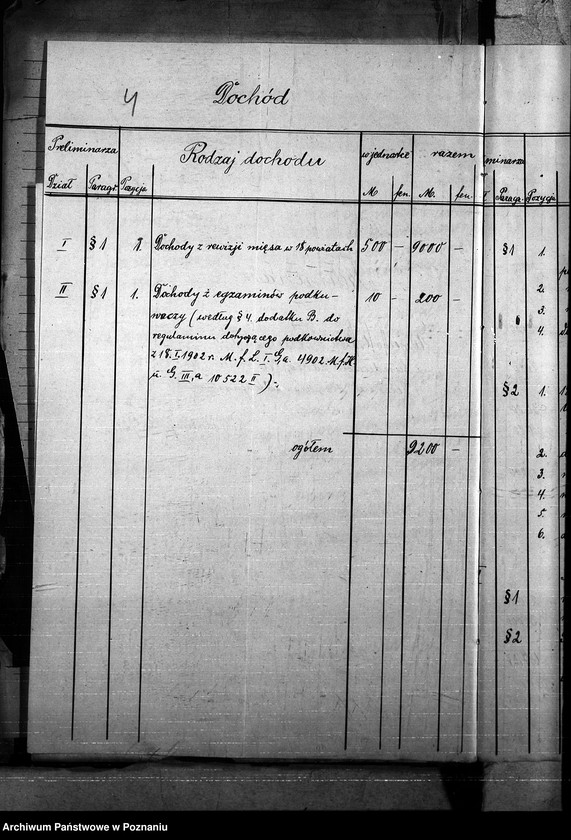 4 Dochód
Preliminarza Rodzaj dochodu w jednatce razem minarza
Dział Paragr. Pozycja M fen. M. fen. Paragr. Pozycja
I §1 1. Dochody z rewizji mięsa w 18 powiatach 500 — 9000 — §1 1.
II §1 1. Dochody z egzaminów podku- 10 — 200 — 2.
waczy (według § 4. dodatku B. do 3.
regulaminu dotyczącego podkownictwa 4.
z 18. I. 1902 r. M. f. L. I. G. a. 4902 M. f. H
u. G. III, a 10522 II ).
§2 1.
ogółem 9200 — 2.
3.
4.
5.
6.
§1
§2
Archiwum Państwowe w Poznaniu